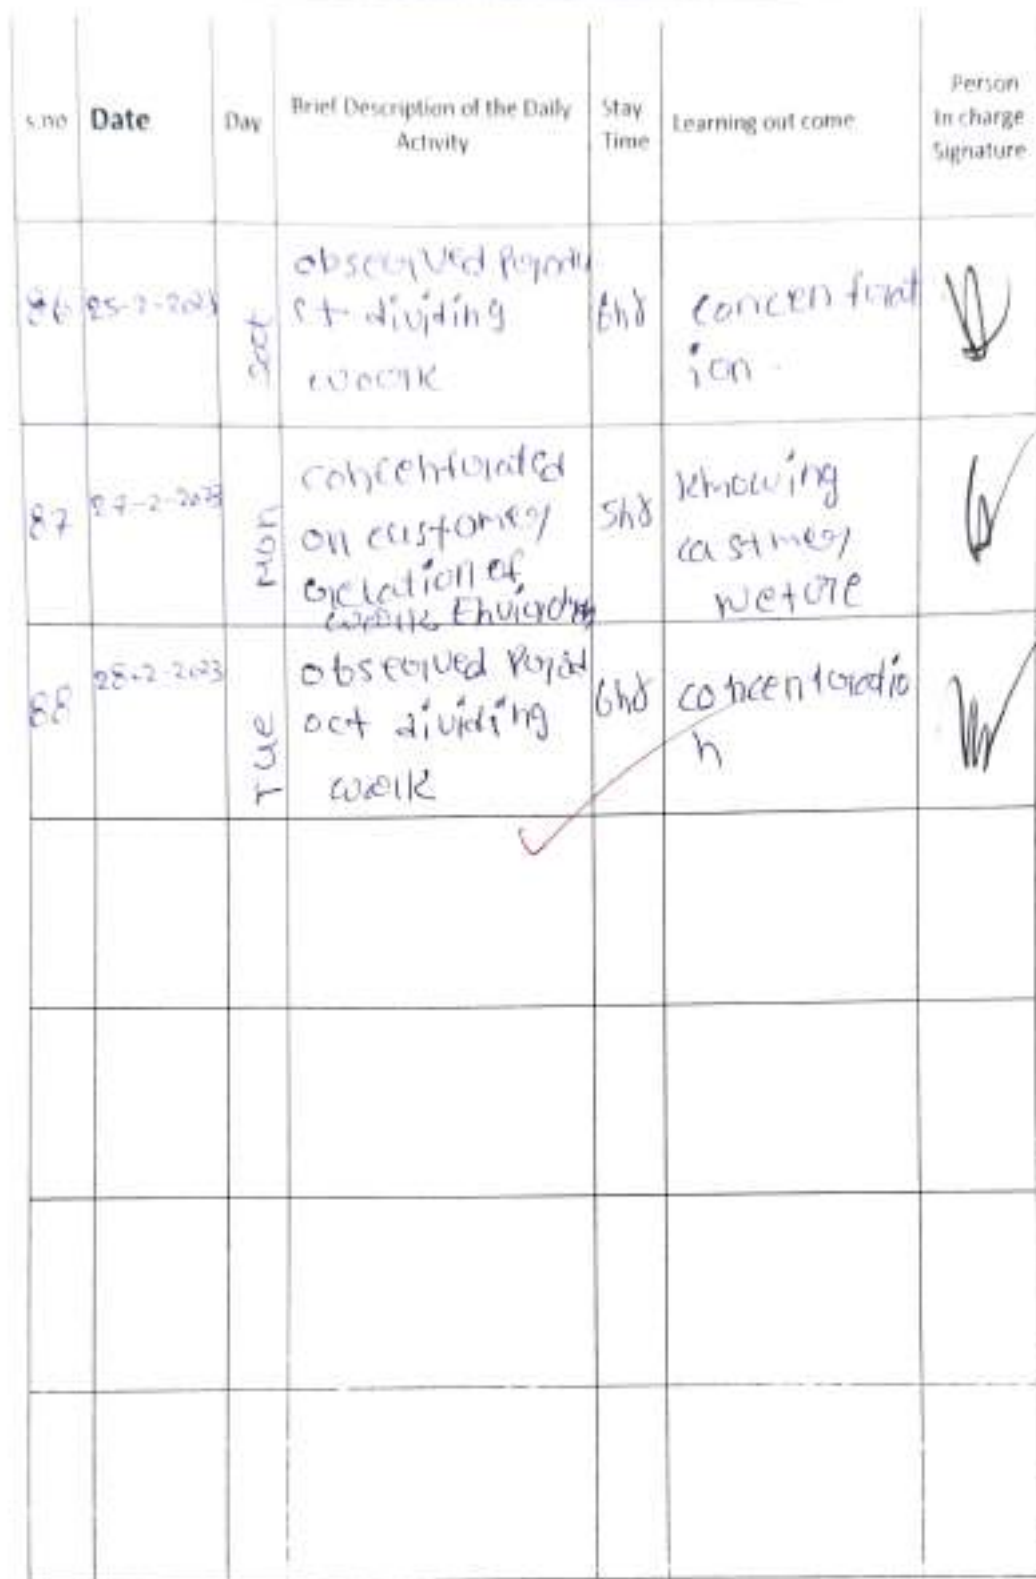 s.no Date Day Brief Description of the Daily Activity Stay Time Learning out come Person In charge Signature
86 25-2-2023 Sat observed
dividing
work
6hr
concentrat
ion.
87 27-2-2023 Mon concentrated
on customer
relation of
work
5hr
knowing
88 28-2-2023 Tue observed
dividing
work
6hr
concentratio
n